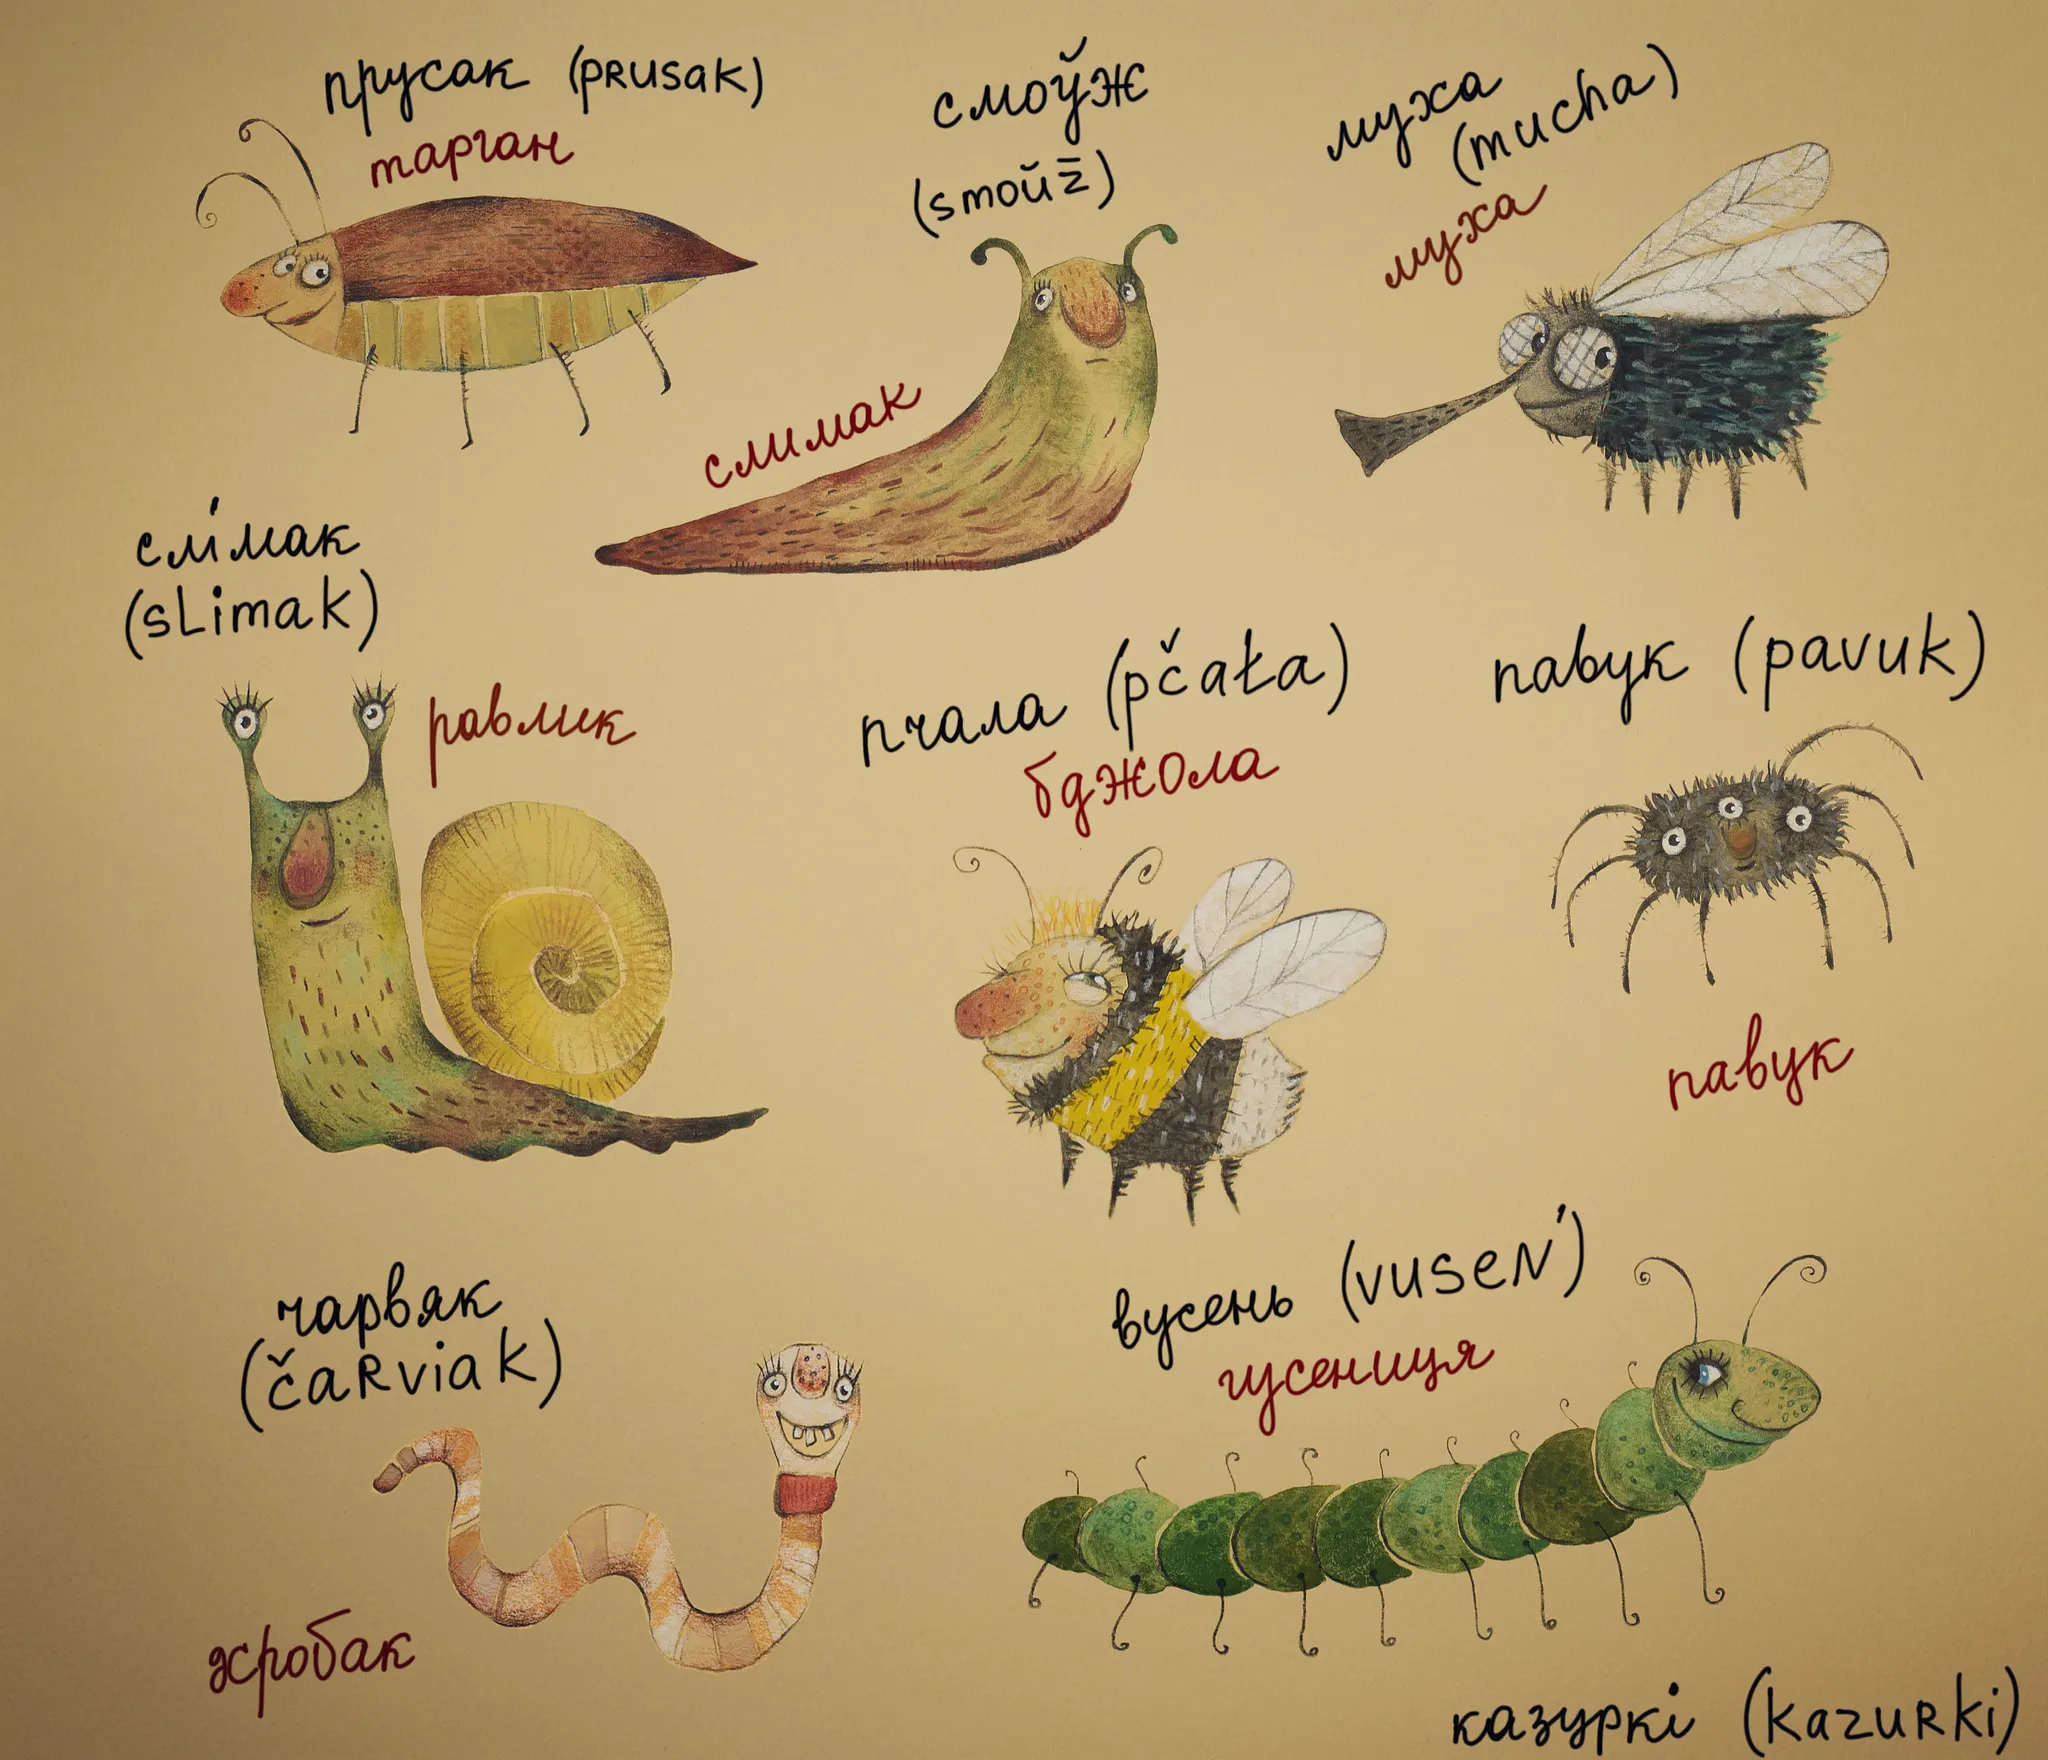 прусак (prusak)
тарган
смоўж
(smoŭž)
слимак
муха
(mucha)
муха
слімак
(slimak)
равлик
пчала (pčała)
бджола
павук (pavuk)
павук
чарвяк
(čarviak)
жробак
вусень (vuseń)
гусениця
казуркі (kazurki)